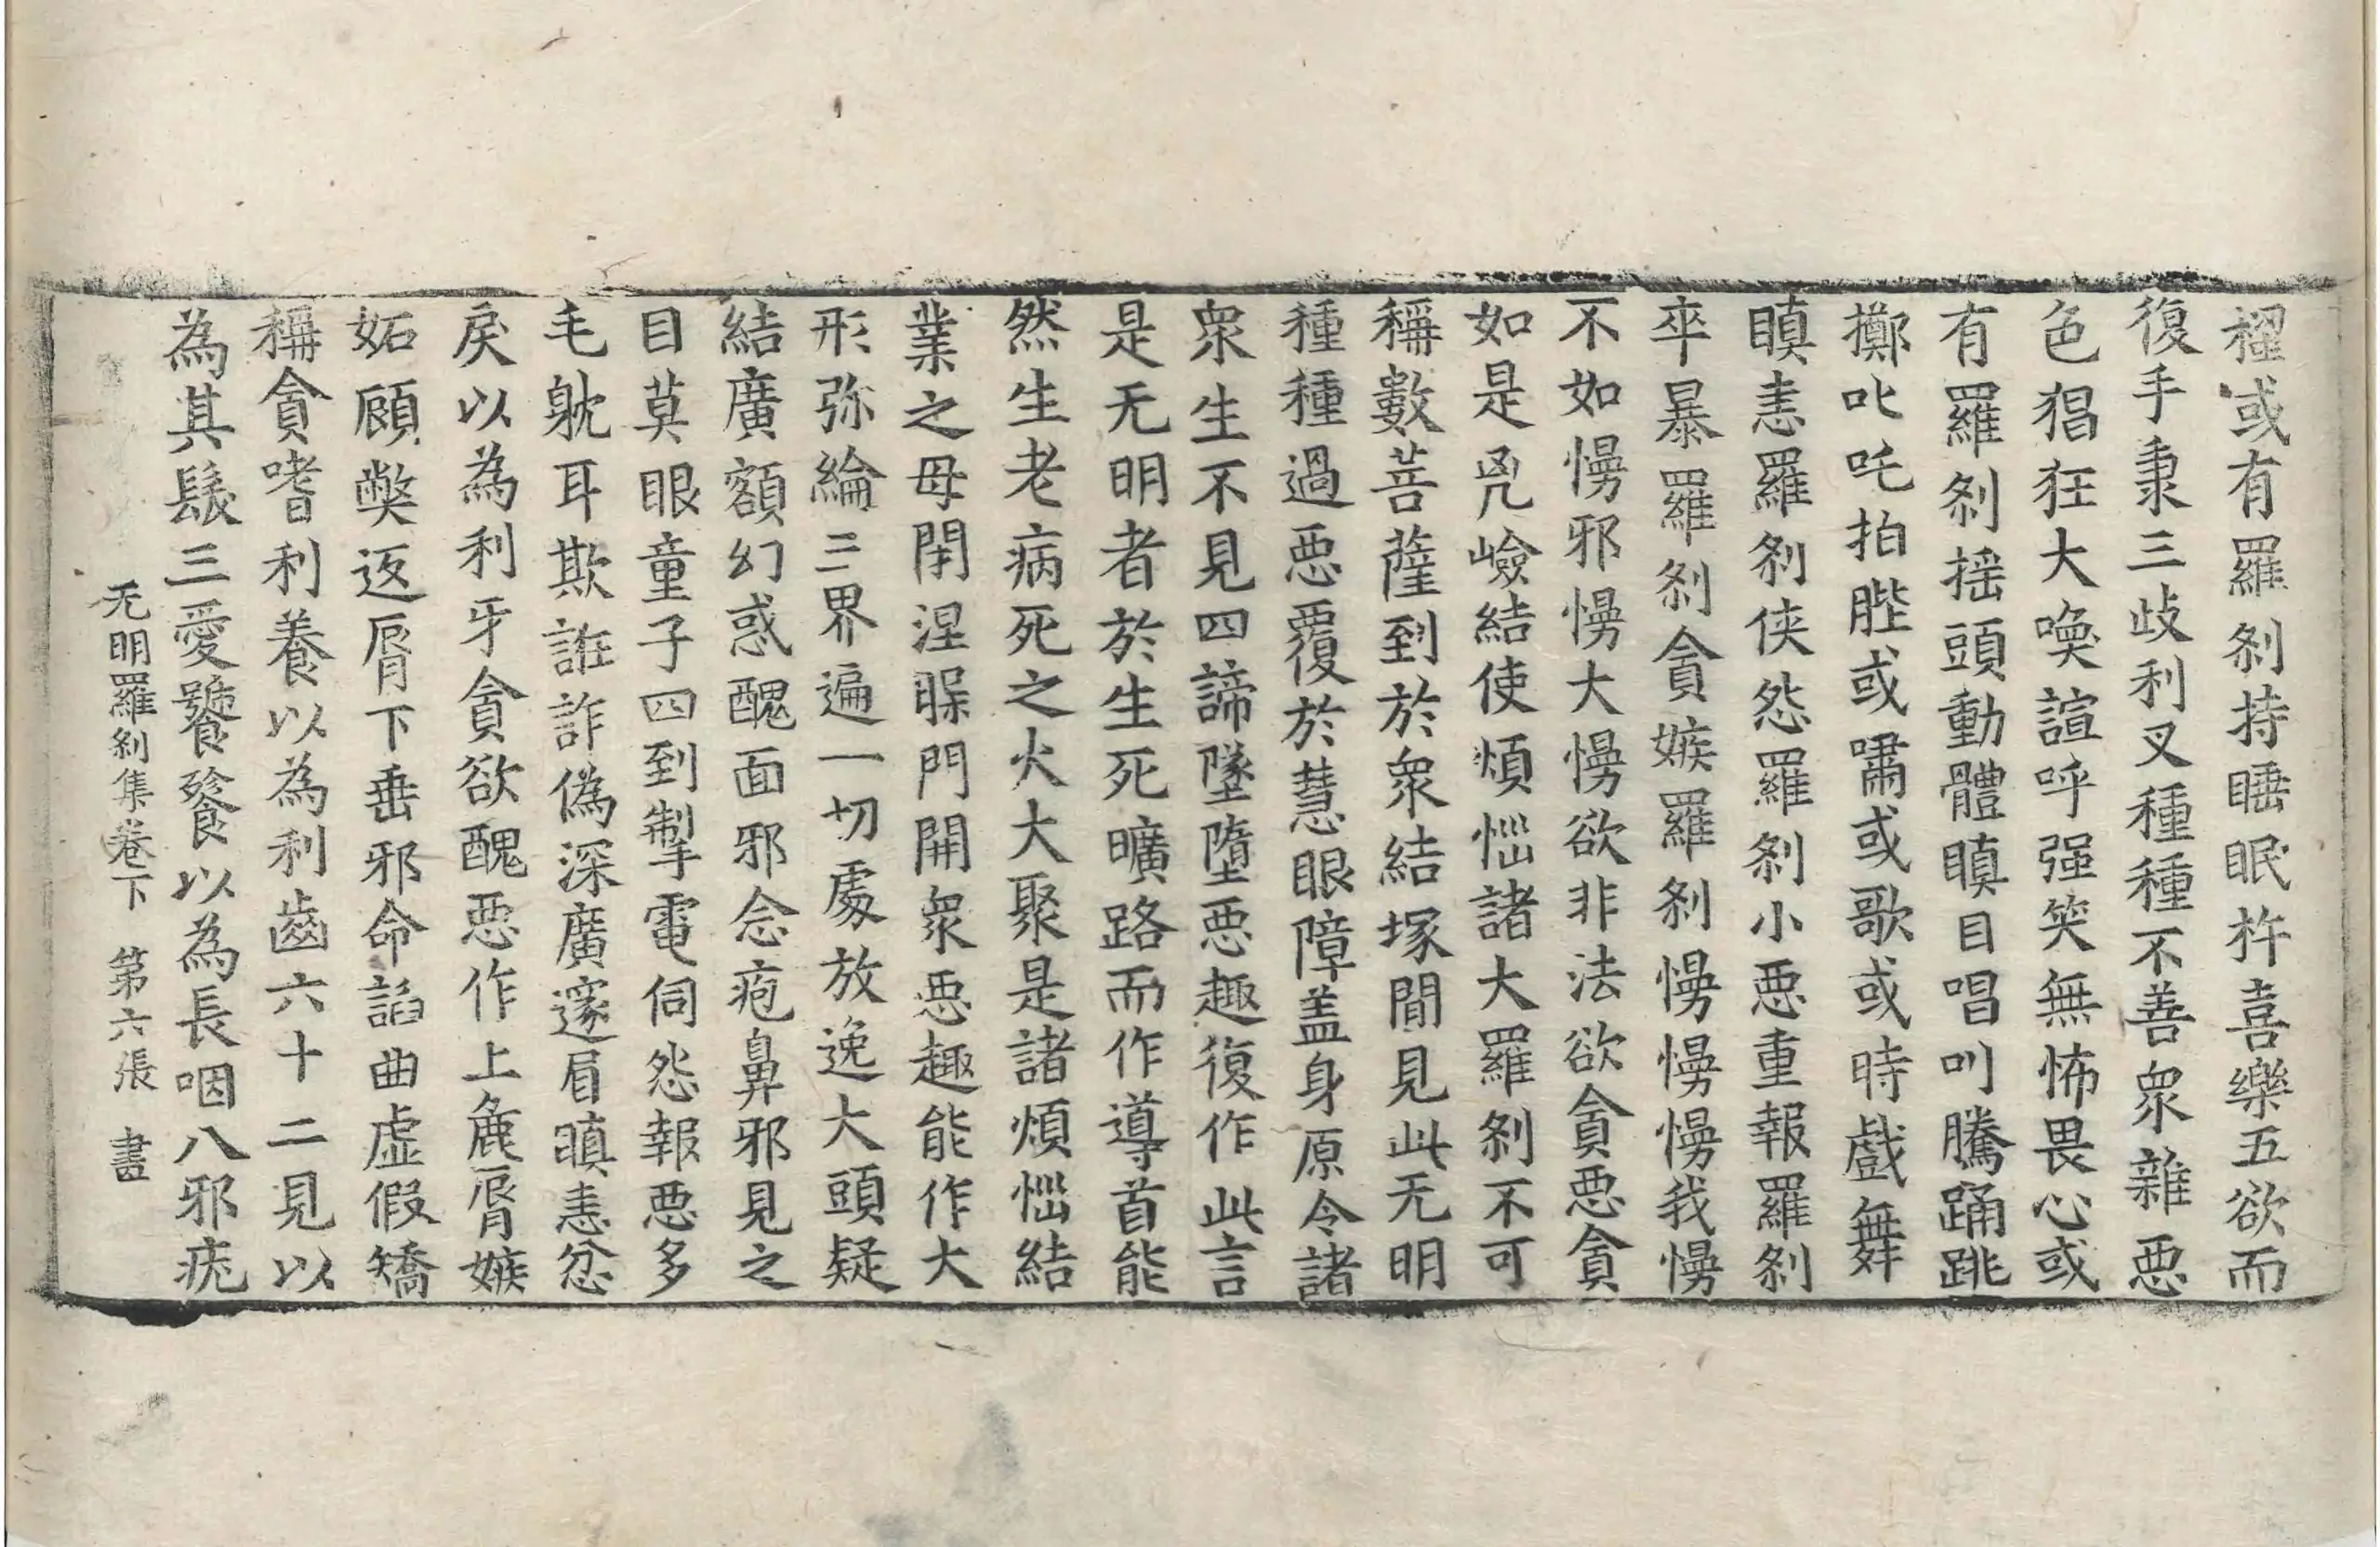 䂄或有羅刹持睡眠杵喜樂五欲而
復手秉三歧利叉種種不善衆雜惡
色猖狂大喚諠呼强笑無怖畏心或
有羅刹揺頭動體瞋目唱叫騰踊跳
擲叱吒拍髀或嘯或歌或時戲舞
瞋恚羅刹侠怨羅刹小惡重報羅刹
卒暴羅刹貪嫉羅刹慢慢慢我慢
不如慢邪慢大慢欲非法欲貪惡貪
如是兇嶮結使煩惱諸大羅刹不可
稱數菩薩到於衆結塚間見此无明
種種過惡覆於慧眼障盖身原令諸
衆生不見四諦墜墮惡趣復作此言
是无明者於生死曠路而作導首能
然生老病死之火大聚是諸煩惱結
業之母閇涅槃門開衆惡趣能作大
形弥綸三界遍一切處放逸大頭疑
結廣額幻惑醜面邪念疱鼻邪見之
目莫眼童子四到掣電伺怨報惡多
毛躭耳欺誑詐偽深廣邃眉瞋恚忿
戾以為利牙貪欲醜惡作上麁脣嫉
妬顧弊返脣下垂邪命諂曲虛假矯
稱貪嗜利養以為利齒六十二見以
為其髮三愛饕餮以為長咽八邪疣
无明羅刹集卷下 第六張 畫